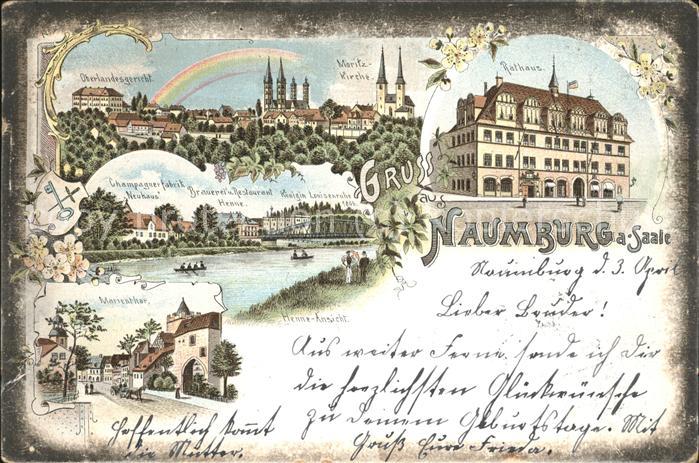 Oberlandesgericht.
Moritz-
Kirche.
Rathaus.
Champagnerfabrik
"Neuhaus"
Brauerei u. Restaurant
Henne.
Königin Louisenruhe
Gruss
aus
Naumburg a. Saale
Henne-Ansicht.
Marienthor.
Naumburg d. 3. April
Lieber Bruder!
Aus weiter Ferne sende ich Dir
die herzlichsten Glückwünsche
zu deinem Geburtstage. Mit
Gruß Eure Frieda.
Hoffentlich kommt
die Mutter.